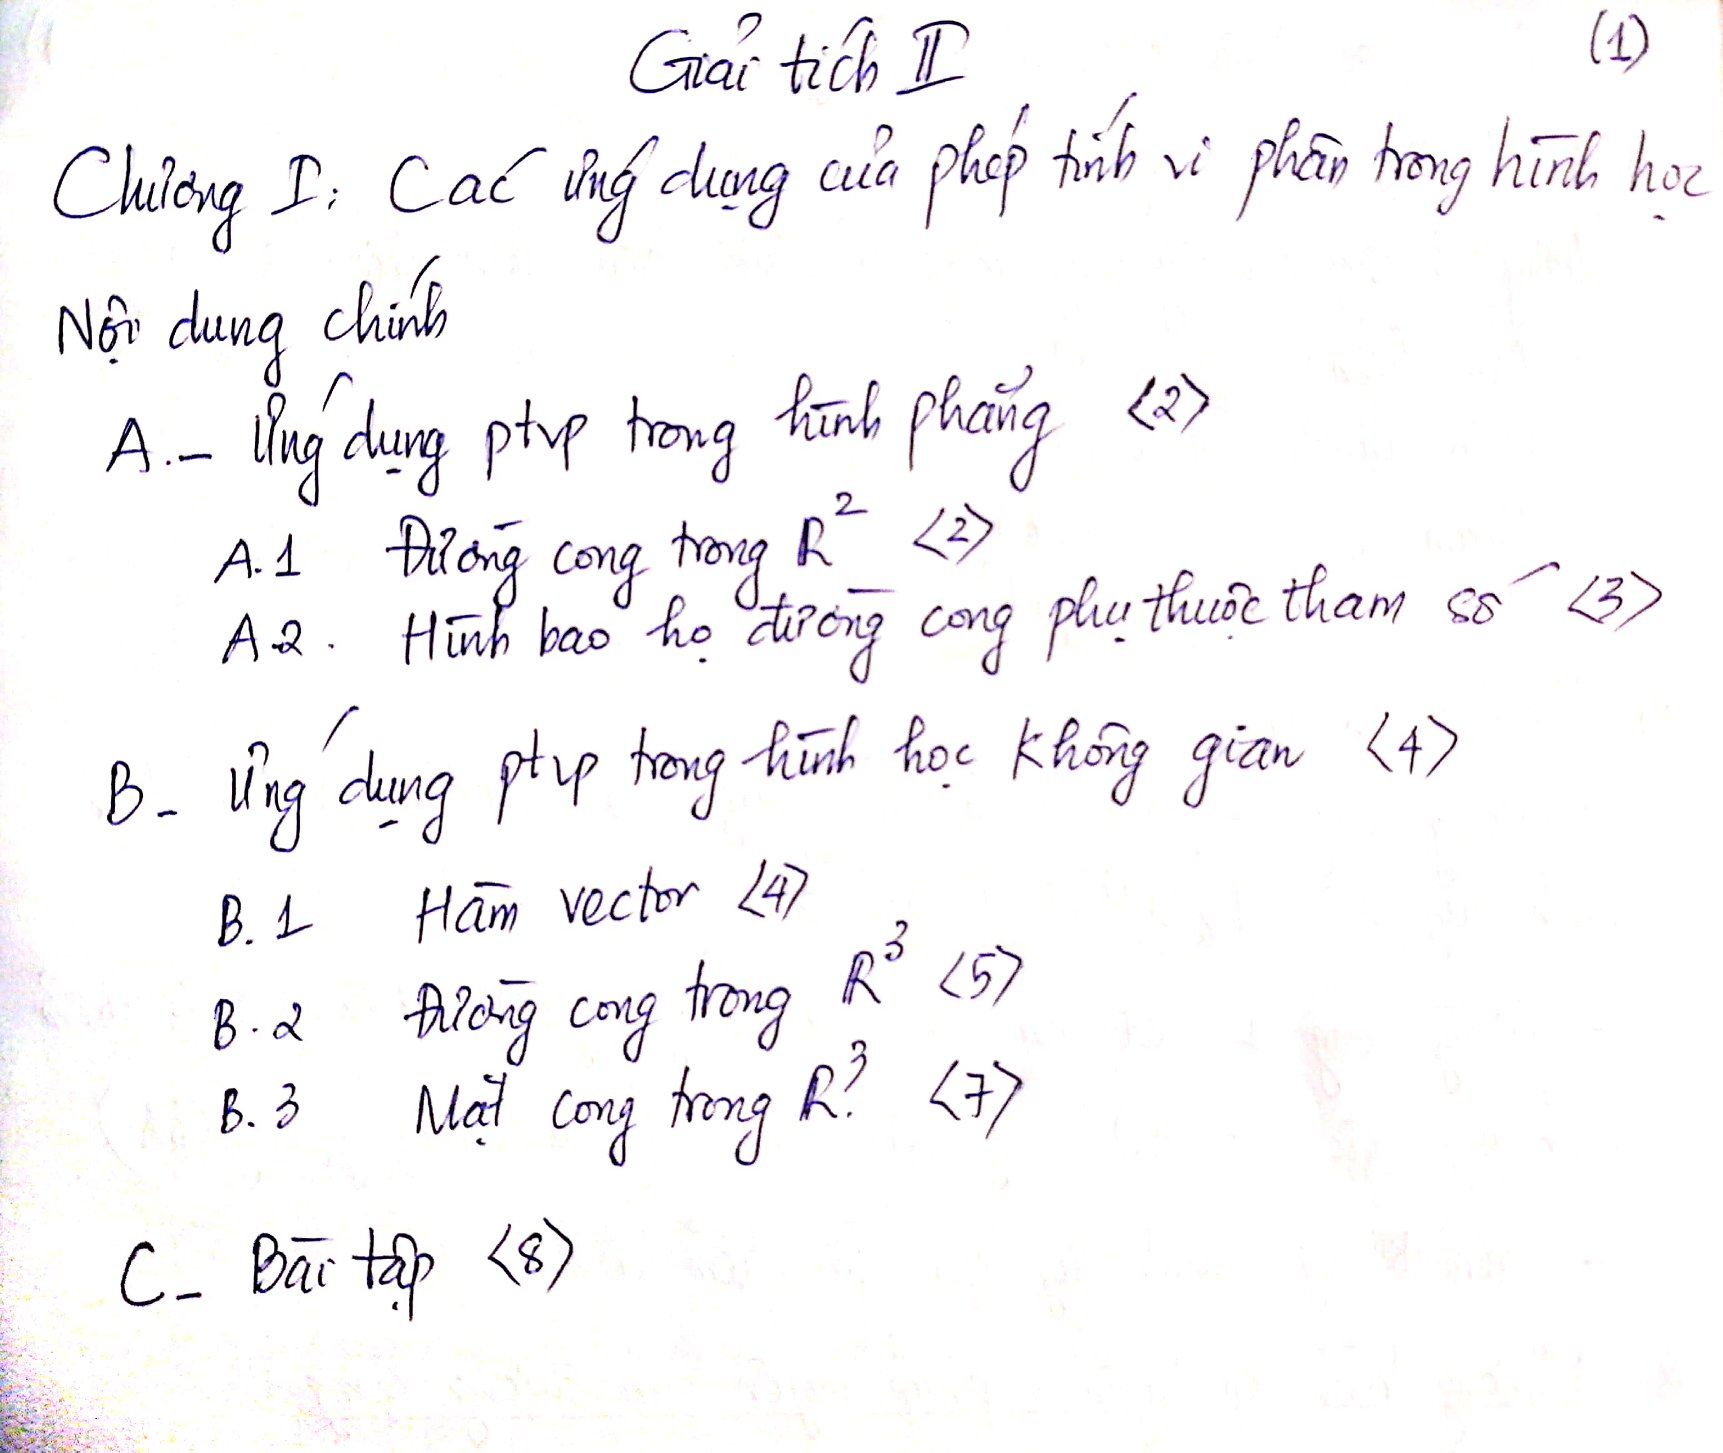 Giải tích II
(1)
Chương I: Các ứng dụng của phép tính vi phân trong hình học
Nội dung chính
A.- Ứng dụng ptvp trong hình phẳng <2>
A.1 Đường cong trong R² <2>
A.2. Hình bao họ đường cong phụ thuộc tham số <3>
B- Ứng dụng ptvp trong hình học không gian <4>
B.1 Hàm vector <4>
B.2 Đường cong trong R³ <5>
B.3 Mặt cong trong R³. <7>
C- Bài tập <8>